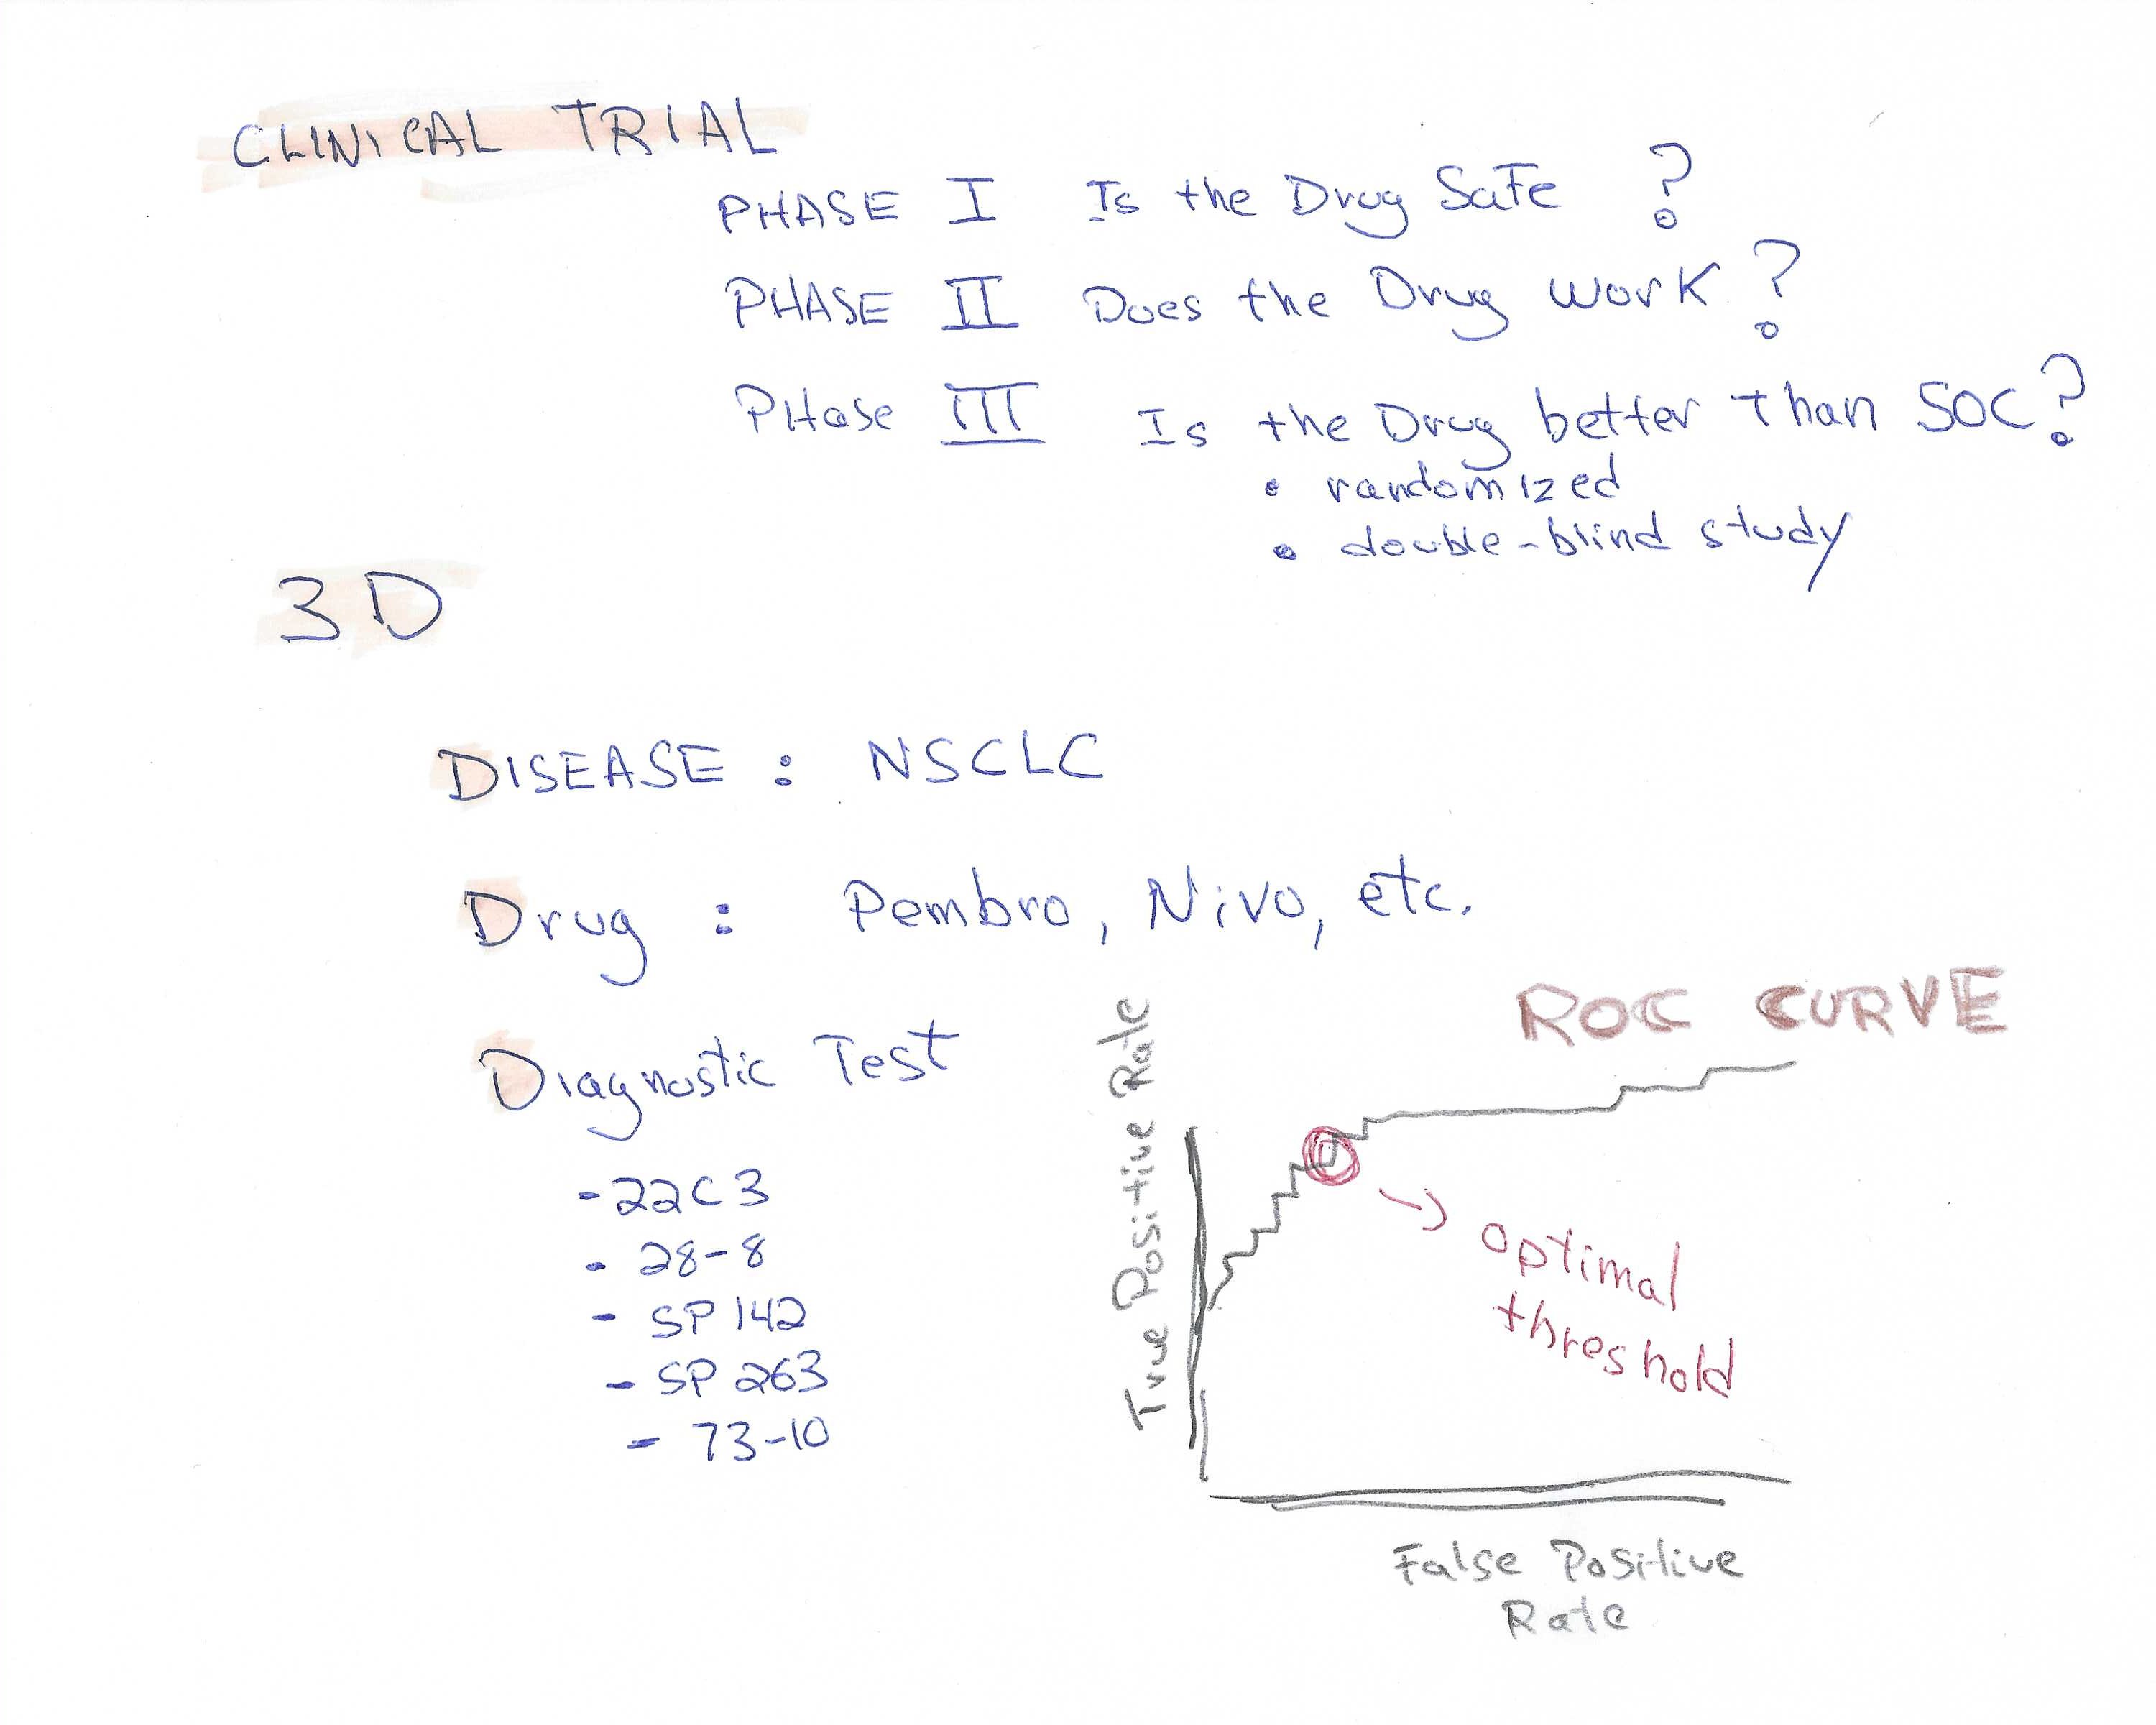 CLINICAL TRIAL
PHASE I Is the Drug Safe ?
PHASE II Does the Drug work ?
PHase III Is the Drug better Than SOC?
• randomized
• double-blind study
3D
DISEASE : NSCLC
Drug : Pembro, Nivo, etc.
Diagnostic Test
-22C3
- 28-8
- SP142
- SP263
- 73-10
ROC CURVE
True Positive Rate
→ optimal
threshold
False Positive
Rate